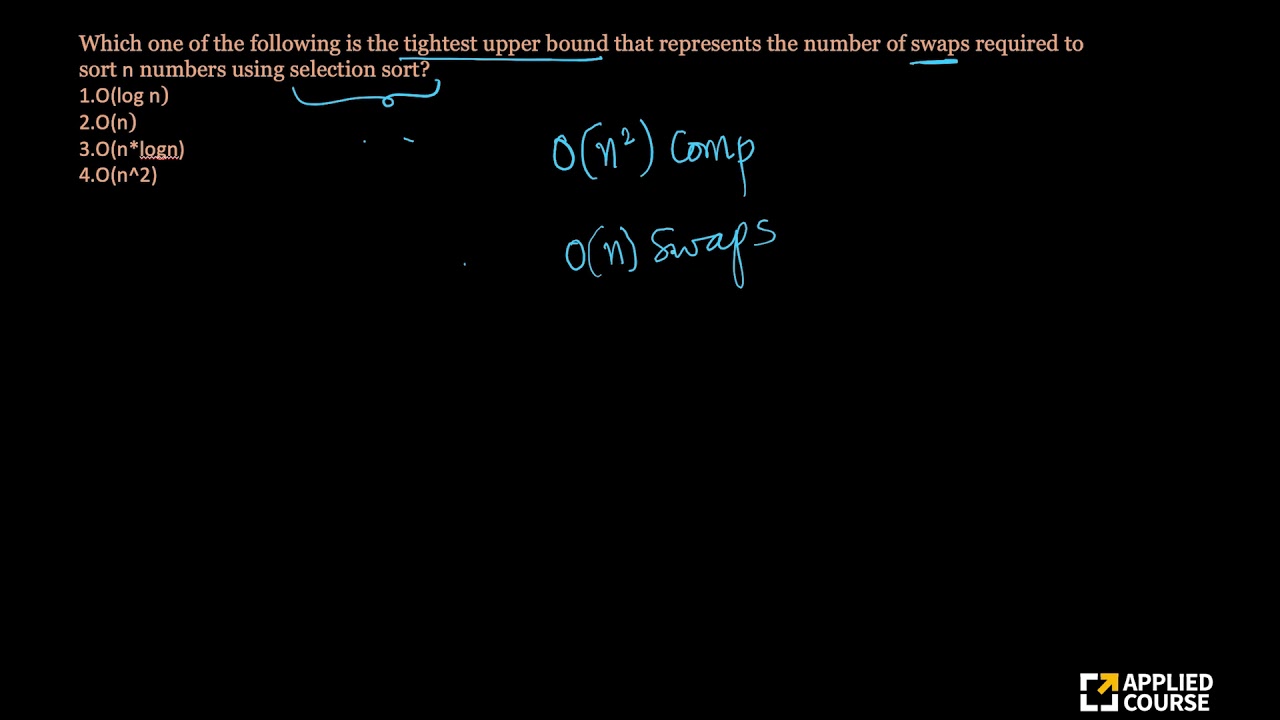 Which one of the following is the tightest upper bound that represents the number of swaps required to
sort n numbers using selection sort?
1.O(log n)
2.O(n)
3.O(n*logn)
4.O(n^2)
O(n²) Comp
O(n) Swaps
APPLIED
COURSE